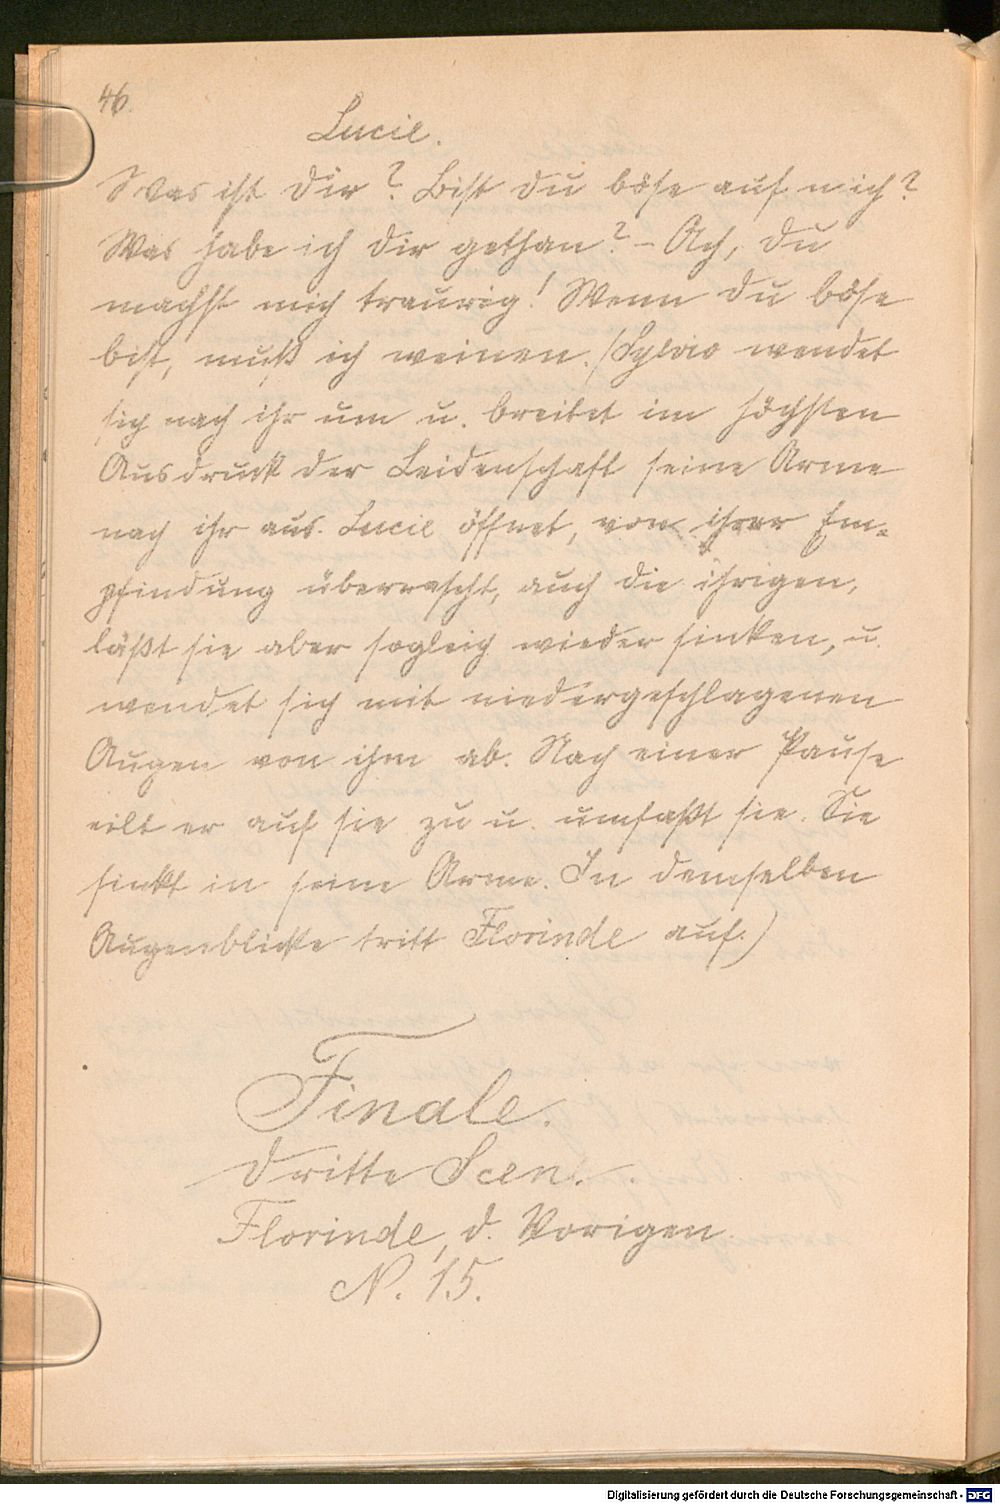 46.
Lucie.
Was ist dir? Bist du böse auf mich?
Was habe ich dir gethan? – Ach, du
machst mich traurig! Wenn du böse
bist, muß ich weinen. (Sylvio wendet
sich nach ihr um u. breitet im höchsten
Ausdruck der Leidenschaft seine Arme
nach ihr aus. Lucie öffnet, von ihrer Em-
pfindung überrascht, auch die ihrigen,
läßt sie aber sogleich wieder sinken, u.
wendet sich mit niedergeschlagenen
Augen von ihm ab. Nach einer Pause
eilt er auf sie zu u. umfaßt sie. Sie
sinkt in seine Arme. In demselben
Augenblicke tritt Florinde auf.)
Finale.
Dritte Scen.
Florinde, d. Vorigen.
N. 15.
Digitalisierung gefördert durch die Deutsche Forschungsgemeinschaft - DFG